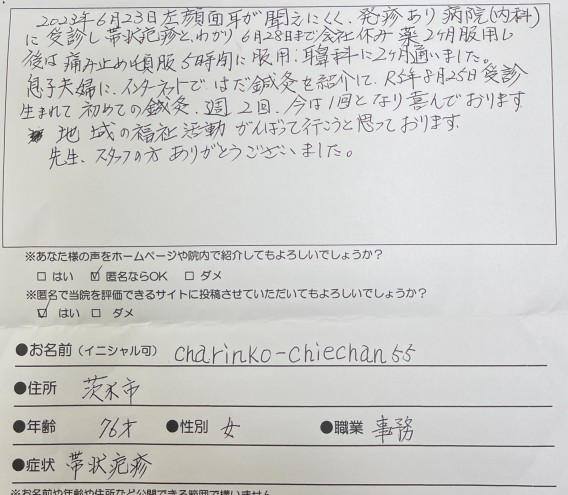 2023年6月23日左顔面耳が聞えにくく、発疹あり病院(内科)
に受診し帯状疱疹とわかり6月28日まで会社休み薬2ヶ月服用し
後は痛み止め頓服5時間に服用:耳鼻科に2ヶ月通いました。
息子夫婦に、インターネットではだ鍼灸を紹介して、R5年8月25日受診
生まれて初めての鍼灸、週2回、今は1回となり喜んでおります
地域の福祉活動がんばって行こうと思っております、
先生、スタッフの方ありがとうございました。
※あなた様の声をホームページや院内で紹介してもよろしいでしょうか?
□ はい ☑ 匿名ならOK □ ダメ
※匿名で当院を評価できるサイトに投稿させていただいてもよろしいでしょうか?
☑ はい □ ダメ
●お名前(イニシャル可) charinko-chiechan55
●住所 茨木市
●年齢 76才 ●性別 女 ●職業 事務
●症状 帯状疱疹
※お名前や年齢や住所など公開できる範囲で構いません